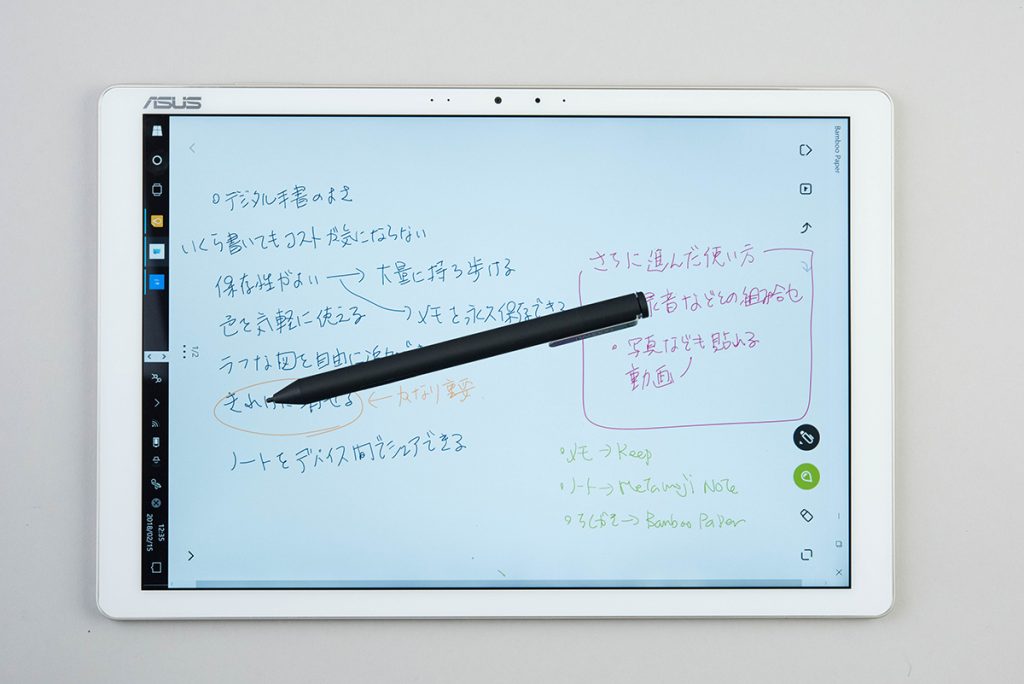 ASUS
Bamboo Paper
○デジタル手書のよさ
いくら書いてもコストが気にならない
保存性がよい → 大量に持ち歩ける
→ メモを永久保存できる
色を気軽に使える
ラフな図を自由に
きれいに消せる ← かなり重要
ノートをデバイス間でシェアできる
さらに進んだ使い方
音などとの組み合せ
・写真なども貼れる
動画
・メモ→Keep
・ノート→MetaMoji Note
→Bamboo Paper
1/2
12:35
2018/02/15